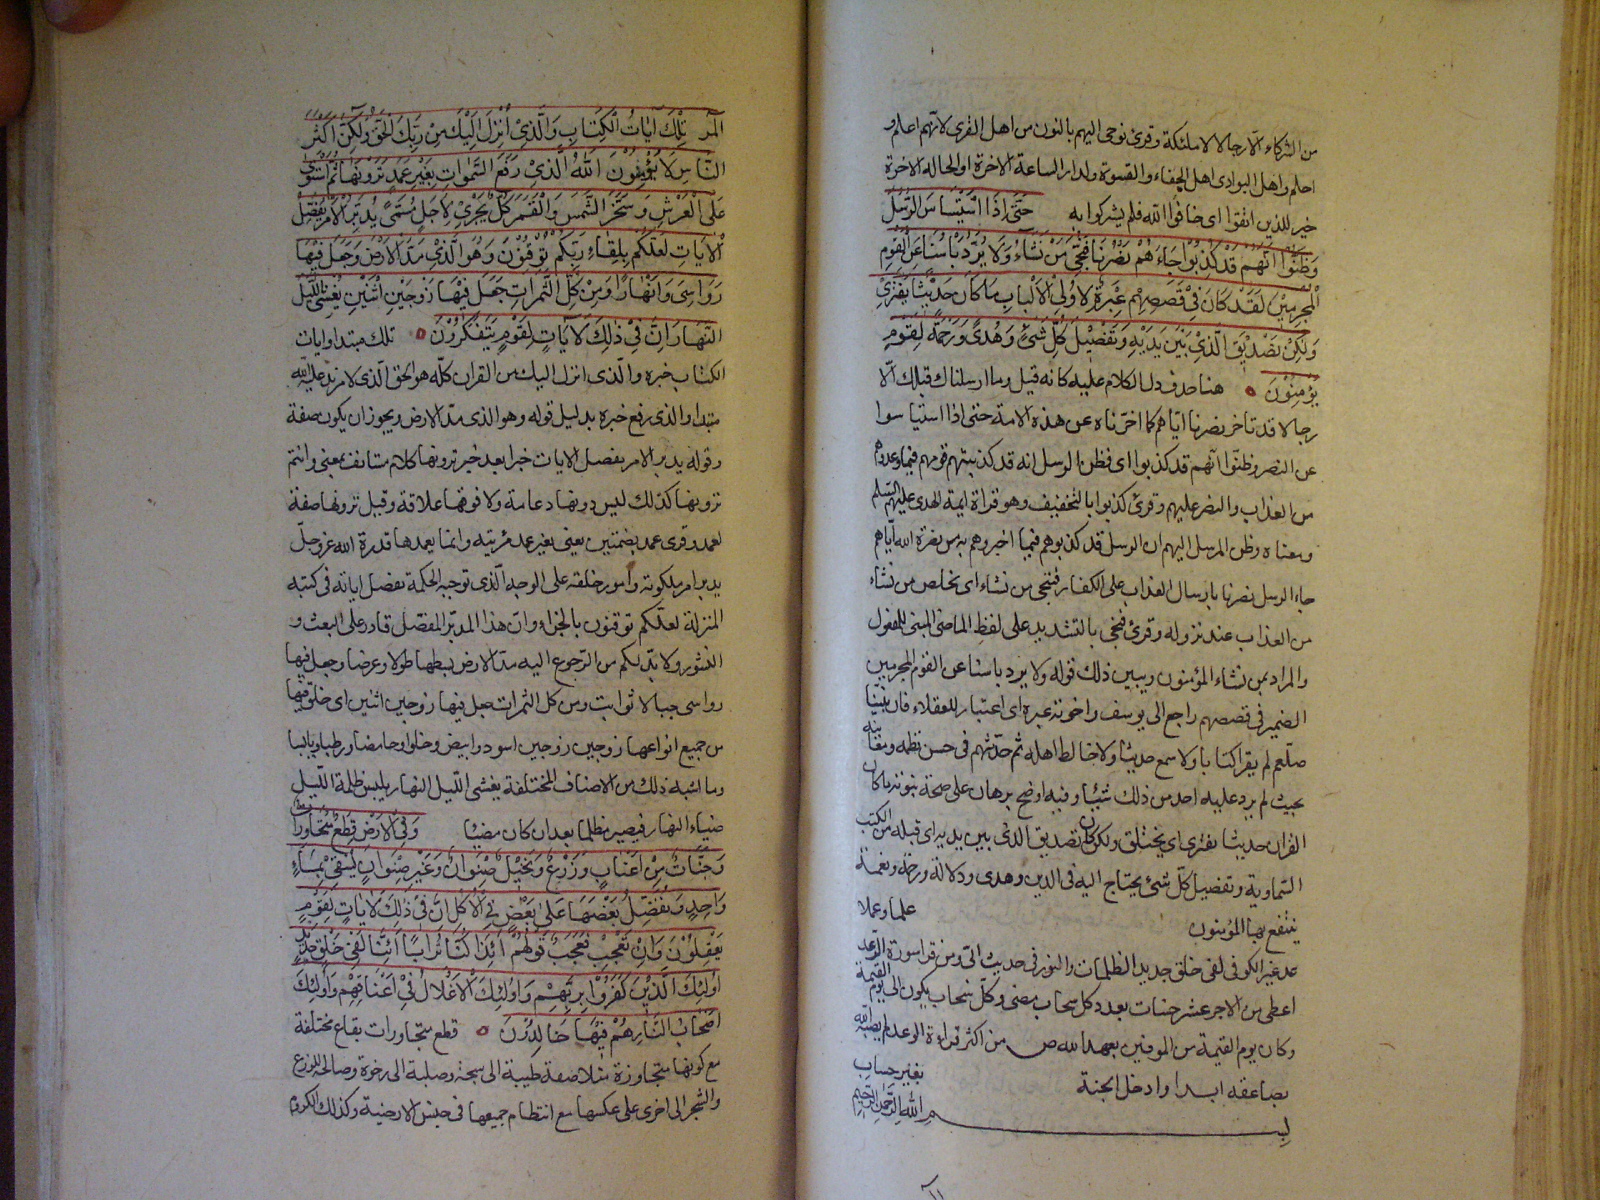 من الشركاء الا رجالا لا ملئكة وقرئ نوحى اليهم بالنون من اهل القرى لانهم اعلم و
احلم واهل البوادى اهل الجفاء والقسوة ولدار الساعة الاخرة او الحالة الاخرة
خير للذين اتقوا اى خافوا الله فلم يشركوا به حَتّٰى اِذَا اسْتَيْئَاسَ الرُّسُلُ
وَظَنُّوا اَنَّهُمْ قَدْ كُذِبُوا جَاءَهُمْ نَصْرُنَا فَنُجِّىَ مَنْ نَشَاءُ وَلَا يُرَدُّ بَأْسُنَا عَنِ الْقَوْمِ
الْمُجْرِمِيْنَ لَقَدْ كَانَ فِىْ قَصَصِهِمْ عِبْرَةٌ لِاُولِى الْاَلْبَابِ مَا كَانَ حَدِيْثًا يُفْتَرٰى
وَلٰكِنْ تَصْدِيْقَ الَّذِىْ بَيْنَ يَدَيْهِ وَتَفْصِيْلَ كُلِّ شَىْءٍ وَهُدًى وَرَحْمَةً لِقَوْمٍ
يُؤْمِنُوْنَ هنا حذف دل الكلام عليه كانه قيل وما ارسلناك قبلك الا
رجالا قد تاخر نصرنا اياهم كما اخرناه عن هذه الامة حتى اذا استياسوا
عن النصر وظنوا انهم قد كذبوا اى فظن الرسل انه قد كذبتهم قومهم فيما وعدوهم
من العذاب والنصر عليهم وقرئ كذبوا بالتخفيف وهو قراة ايمة الهدى عليهم السلم
ومعناه وظن المرسل اليهم ان الرسل قد كذبوهم فيما اخبروهم به من نصرة الله اياهم
جاء الرسل نصرنا بارسال العذاب على الكفار فننجى من نشاء اى نخلص من نشاء
من العذاب عند نزوله وقرئ فنجى بالتشديد على لفظ الماضى المبنى للمفعول
والمراد بمن نشاء المؤمنون ويبين ذلك قوله ولا يرد باسنا عن القوم المجرمين
الضمير فى قصصهم راجع الى يوسف واخوته عبرة اى اعتبار للعقلاء فان نبينا
صلعم لم يقرا كتابا ولا سمع حديثا ولا خالط اهله ثم حدثهم فى حسن نظمه ومعانيه
بحيث لم يرد عليه احد من ذلك شيئا وفيه اوضح برهان على صحة نبوته ما كان
القران حديثا يفترى اى يختلق ولكن كان تصديق الذى بين يديه اى قبله من الكتب
السماوية وتفصيل كل شئ يحتاج اليه فى الدين وهدى ودلالة ورحمة ونعمة
ينتفع بها المؤمنون علما وعملا
عد غير الكوفى لفى خلق جديد الظلمات والنور فى حديث ابى ومن قرا سورة الرعد
اعطى من الاجر عشر حسنات بعدد كل سحاب مضى وكل سحاب يكون الى يوم القيمة
وكان يوم القيمة من الموفين بعهد الله ص من اكثر قراءة الرعد لم يصبه الله
بصاعقة ابدا وادخل الجنة بغير حساب
بسم الله الرحمن الرحيم
المر تِلْكَ اٰيَاتُ الْكِتَابِ وَالَّذِىْ اُنْزِلَ اِلَيْكَ مِنْ رَبِّكَ الْحَقُّ وَلٰكِنَّ اَكْثَرَ
النَّاسِ لَا يُؤْمِنُوْنَ اَللّٰهُ الَّذِىْ رَفَعَ السَّمٰوَاتِ بِغَيْرِ عَمَدٍ تَرَوْنَهَا ثُمَّ اسْتَوٰى
عَلَى الْعَرْشِ وَسَخَّرَ الشَّمْسَ وَالْقَمَرَ كُلٌّ يَجْرِىْ لِاَجَلٍ مُسَمًّى يُدَبِّرُ الْاَمْرَ يُفَصِّلُ
الْاٰيَاتِ لَعَلَّكُمْ بِلِقَاءِ رَبِّكُمْ تُوْقِنُوْنَ وَهُوَ الَّذِىْ مَدَّ الْاَرْضَ وَجَعَلَ فِيْهَا
رَوَاسِىَ وَاَنْهَارًا وَمِنْ كُلِّ الثَّمَرَاتِ جَعَلَ فِيْهَا زَوْجَيْنِ اثْنَيْنِ يُغْشِى اللَّيْلَ
النَّهَارَ اِنَّ فِىْ ذٰلِكَ لَاٰيَاتٍ لِقَوْمٍ يَتَفَكَّرُوْنَ تلك مبتدا وايات
الكتاب خبره والذى انزل اليك من القران كله هو الحق الذى لا مزيد عليه الله
مبتدا والذى رفع خبره بدليل قوله وهو الذى مد الارض ويجوز ان يكون صفة
وقوله يدبر الامر يفصل الايات خبرا بعد خبر ترونها كلام مستانف بمعنى وانتم
ترونها كذلك ليس دونها دعامة ولا فوقها علاقة وقيل ترونها صفة
لعمد وقرى عمد بضمتين يعنى بغير عمد مرئية وانما يعمدها قدرة الله عز وجل
يدبر امر ملكوته وامور خلقه على الوجه الذى توجبه الحكمة يفصل اياته فى كتبه
المنزلة لعلكم توقنون بالجزاء وان هذا المدبر المفصل قادر على البعث و
النشور ولا بد لكم من الرجوع اليه مد الارض بسطها طولا وعرضا وجعل فيها
رواسى جبالا ثوابت ومن كل الثمرات جعل فيها زوجين اثنين اى خلق فيها
من جميع انواعها زوجين زوجين اسود وابيض وحلوا وحامضا ورطبا ويابسا
وما اشبه ذلك من الاصناف المختلفة يغشى الليل النهار يلبس ظلمة الليل
ضياء النهار فيصير مظلما بعد ان كان مضيئا وَفِى الْاَرْضِ قِطَعٌ مُتَجَاوِرَاتٌ
وَجَنَّاتٌ مِنْ اَعْنَابٍ وَزَرْعٌ وَنَخِيْلٌ صِنْوَانٌ وَغَيْرُ صِنْوَانٍ يُسْقٰى بِمَاءٍ
وَاحِدٍ وَنُفَضِّلُ بَعْضَهَا عَلٰى بَعْضٍ فِى الْاُكُلِ اِنَّ فِىْ ذٰلِكَ لَاٰيَاتٍ لِقَوْمٍ
يَعْقِلُوْنَ وَاِنْ تَعْجَبْ فَعَجَبٌ قَوْلُهُمْ اَئِذَا كُنَّا تُرَابًا اَئِنَّا لَفِىْ خَلْقٍ جَدِيْدٍ
اُولٰئِكَ الَّذِيْنَ كَفَرُوْا بِرَبِّهِمْ وَاُولٰئِكَ الْاَغْلَالُ فِىْ اَعْنَاقِهِمْ وَاُولٰئِكَ
اَصْحَابُ النَّارِ هُمْ فِيْهَا خَالِدُوْنَ قطع متجاورات بقاع مختلفة
مع كونها متجاورة متلاصقة طيبة الى سبخة وصلبة الى رخوة وصالحة للزرع
والشجر الى اخرى على عكسها مع انتظام جميعها فى جنس الارضية وكذلك الكروم